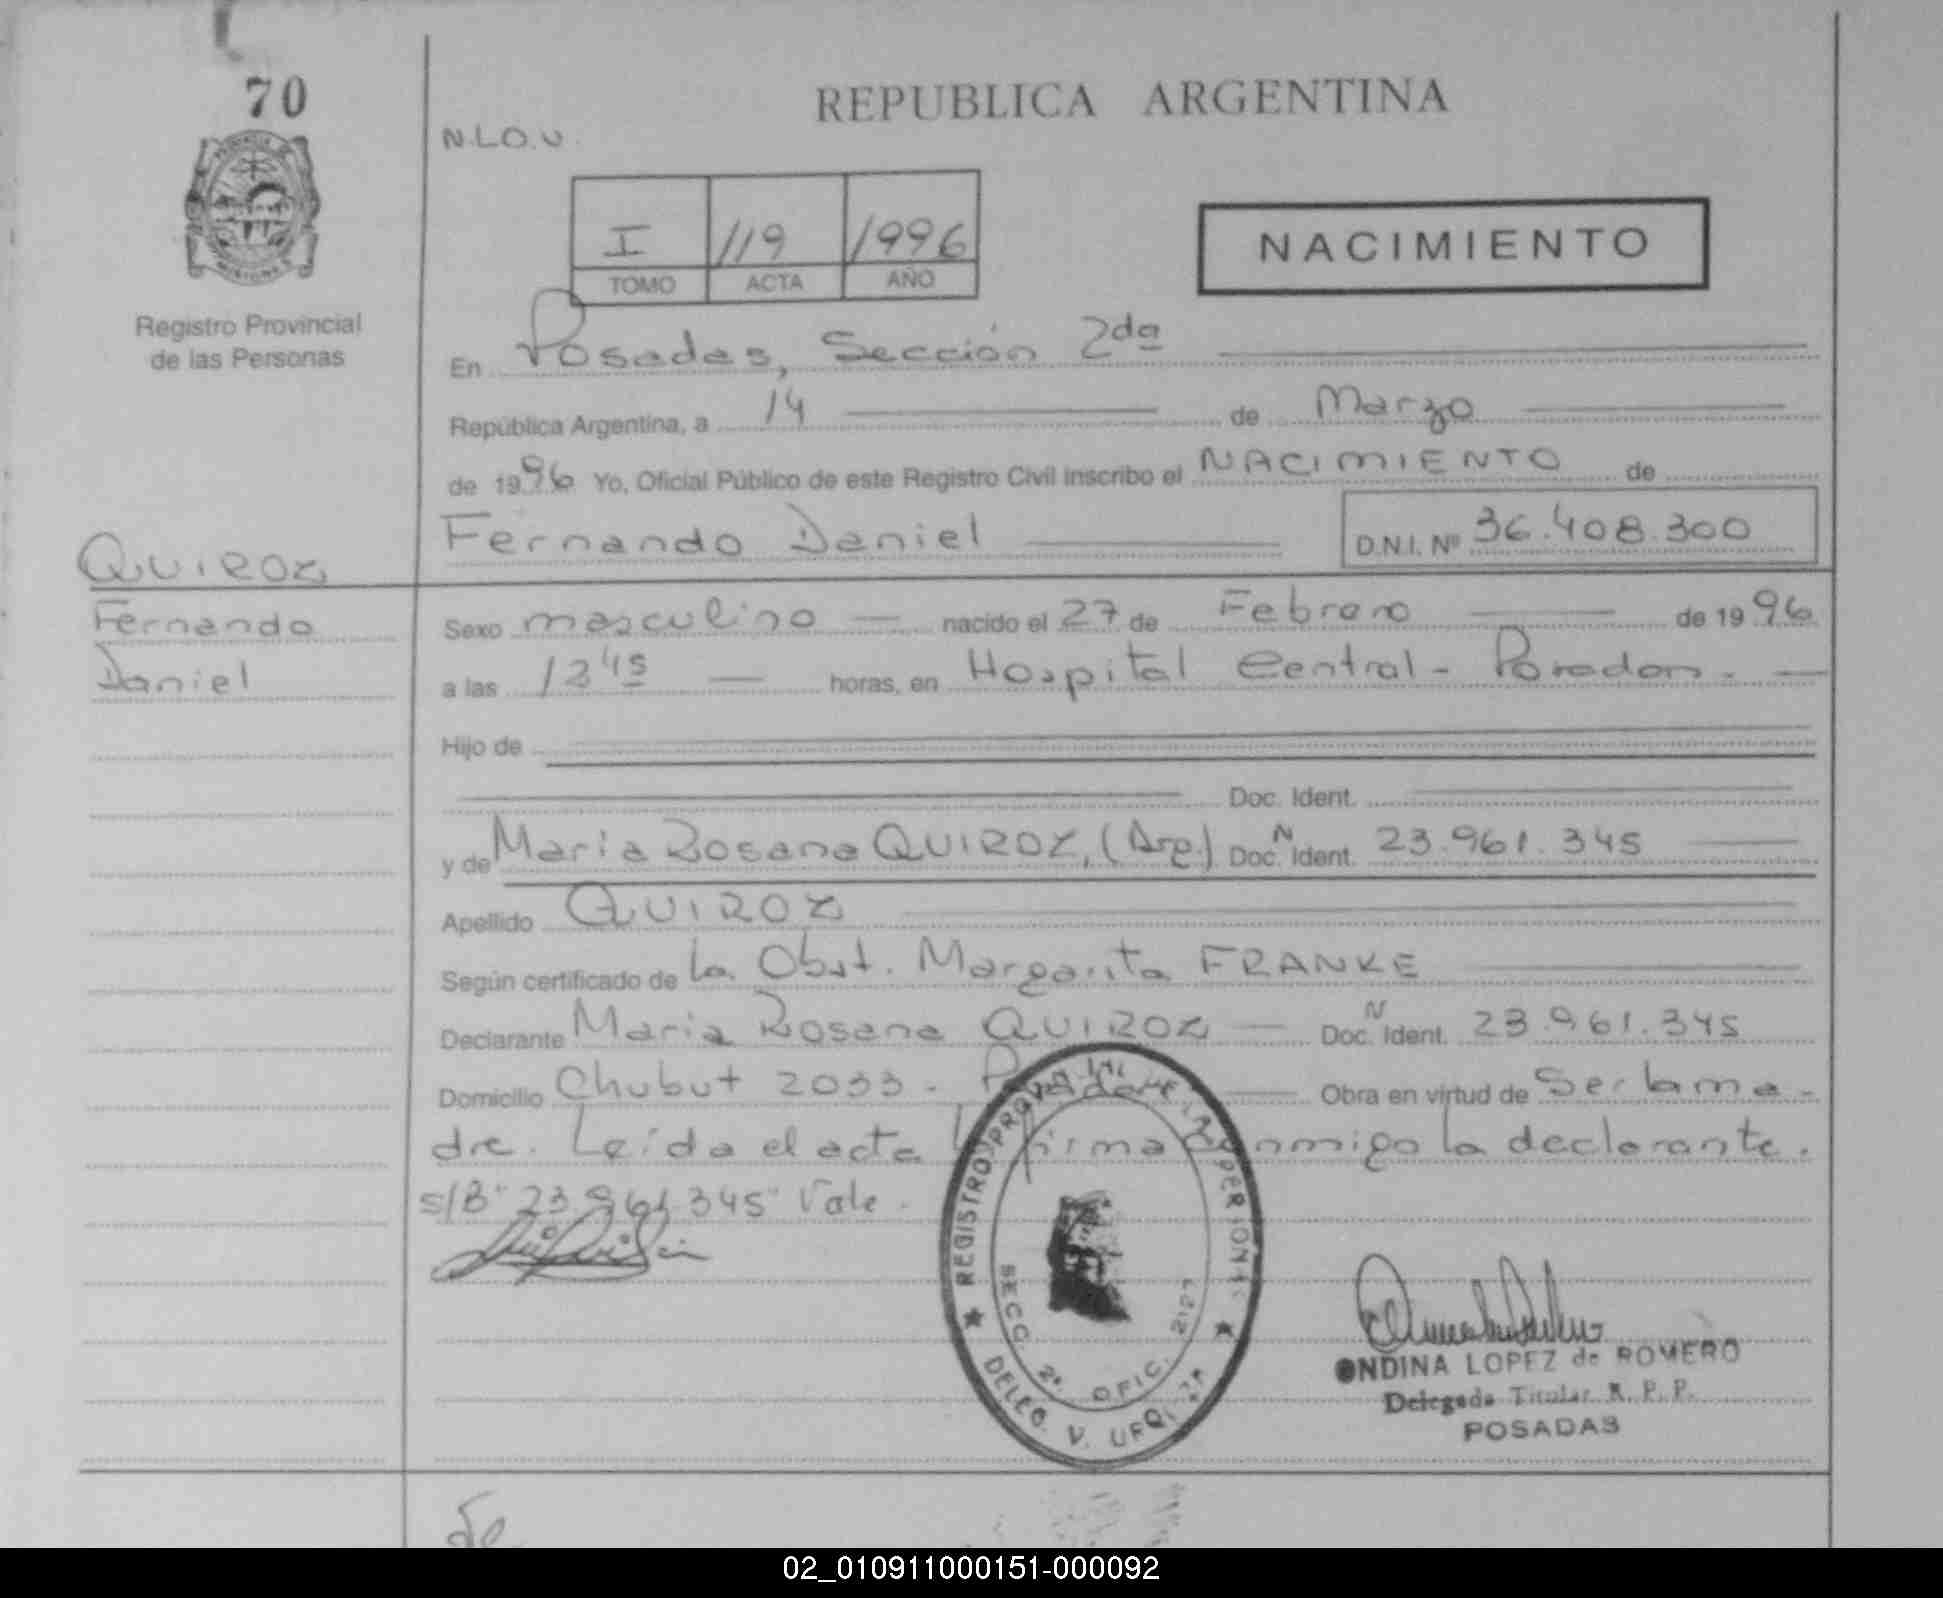 70
REPUBLICA ARGENTINA
N.L.O.V.
I 119 1996
TOMO ACTA AÑO
NACIMIENTO
Registro Provincial
de las Personas
En Posadas, Sección 2da
República Argentina, a 14 de Marzo
de 1996 Yo, Oficial Público de este Registro Civil Inscribo el NACIMIENTO de
Fernando Daniel D.N.I. Nº 36.408.300
QUIROZ
Fernando
Daniel
Sexo masculino nacido el 27 de Febrero de 1996
a las 1345 horas, en Hospital Central - Posadas.
Hijo de
Doc. Ident.
y de Maria Rosana QUIROZ, (Arg.) Doc. N Ident. 23.961.345
Apellido QUIROZ
Según certificado de la Obst. Margarita FRANKE
Declarante Maria Rosana QUIROZ Doc. N Ident. 23.961.345
Domicilio Chubut 2033 - Posadas Obra en virtud de Ser la ma-
dre. Leída el acta firma conmigo la declarante.
S/B "23.961.345" Vale.
REGISTRO PROVINCIAL DE LAS PERSONAS
SECC. 2ª. OFIC.
DELEG. V. URQUIZA
ONDINA LOPEZ de ROMERO
Delegada Titular R. P. P.
POSADAS
02_010911000151-000092